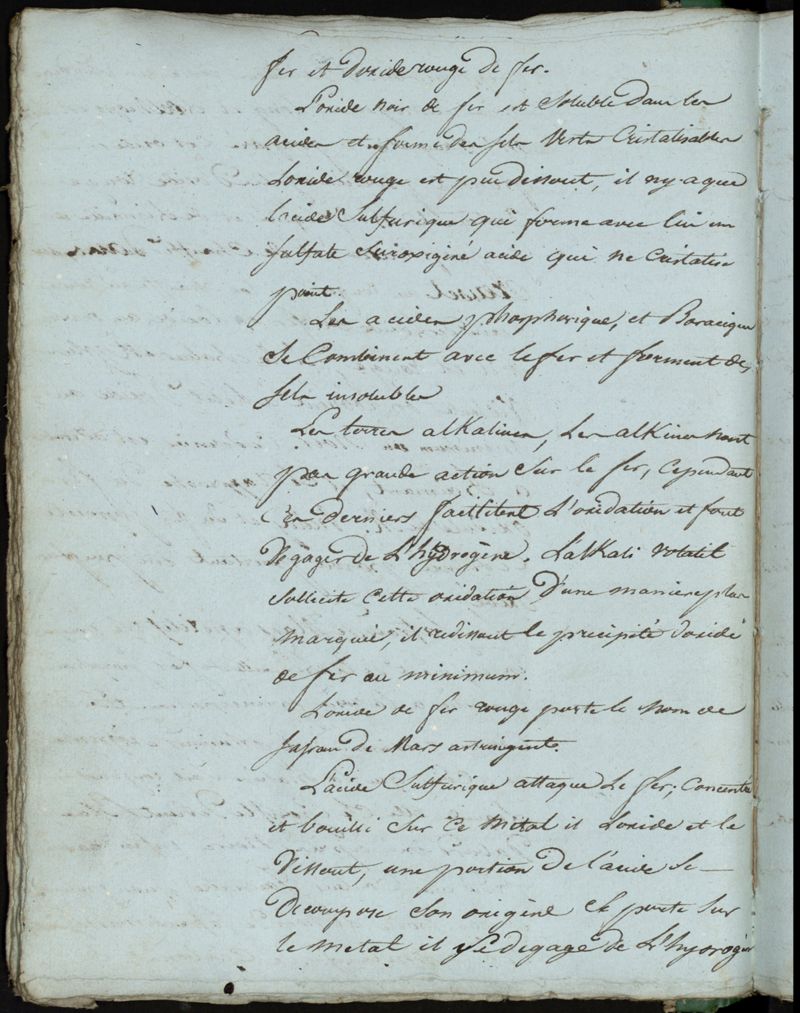 fer et d'oxide rouge de fer.
L'oxide noir de fer est soluble dans les
acides et forme des sels verts cristalisables
Loxide rouge est peu dissout, il ny a que
lacide sulfurique qui forme avec lui un
sulfate suroxigéné acide qui ne cristalise
point.
Les acides phosphorique, et Boracique
se Combinent avec le fer et forment des
sels insolubles
Les terres alkalines, Les alkines n'ont
pas grande action sur le fer, cependant
ces derniers facilitent L'oxidation et font
dégager de L'hydrogène. L'alkali volatil
sollicite cette oxidation d'une maniere plus
marquée, il redissout le précipité doxide
de fer au minimum.
L'oxide de fer rouge porte le nom de
safran de Mars astringent.
L'acide sulfurique attaque le fer; Concentré
et bouilli sur ce métal il Loxide et le
dissout, une portion de l'acide se
décompose son oxigène se porte sur
le métal il se dégage de L'hydrogène